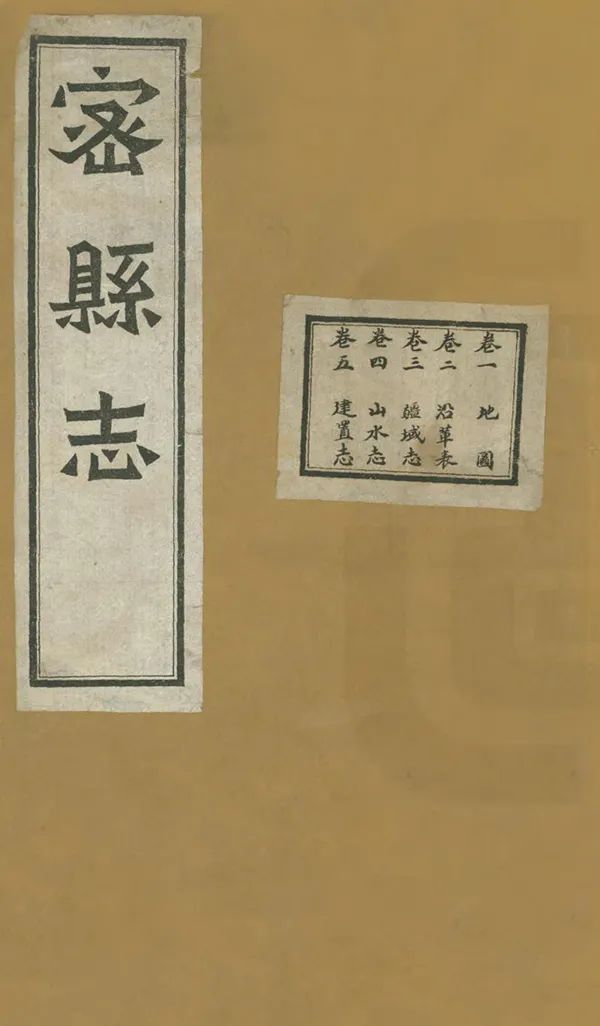 密縣志
卷一 地圖
卷二 沿革表
卷三 疆域志
卷四 山水志
卷五 建置志